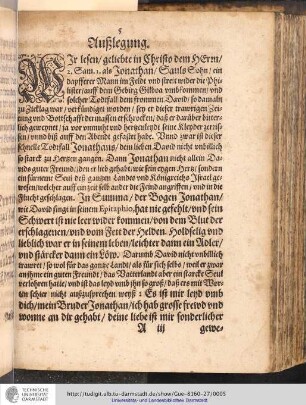 5
Außlegung.
WJr lesen/ geliebte in Christo dem HErrn/
2. Sam. 1. als Jonathan/ Sauls Sohn/ ein
dapfferer Mann im Feldt vnd streit wider die Phi-
lister/ auff dem Gebirg Gilboa vmbkommen/ vnd
solcher Todtfall dem frommen David/ so damaln
zu Ziklag war/ verkündiget worden/ sey er dieser trawrigen Zei-
tung vnd Bottschafft der massen erschrocken/ daß er darüber bitter-
lich geweynet/ ja vor vnmuth vnd hertzenleydt seine Kleyder zerris-
sen/ vnd biß auff den Abendt gefastet habe. Vnnd zwar ist dieser
schnelle Todtfall Jonathans/ dem lieben David nicht vnbillich
so starck zu Hertzen gangen. Dann Jonathan nicht allein Da-
vids guter Freund/ den er lieb gehabt wie sein eygen Hertz/ sonden
ein fürnem Seul deß gantzen Landes vnd Königreichs Jsrael ge-
wesen/ welcher auff ein zeit selb ander die Feind angriffen/ vnd in die
Flucht geschlagen. Jn Summa/ der Bogen Jonathan/
wie David singt in seinem Epitaphio, hat nie gefehlt/ vnd sein
Schwert ist nie leer wider kommen/ von dem Blut der
erschlagenen/ vnd vom Fett der Helden. Holdselig vnd
lieblich war er in seinem leben/ leichter dann ein Adler/
vnd stärcker dann ein Löw. Darumb David nicht vnbillich
trawret/ so wol für das gantze Landt/ als für sich selbs/ weil er zwar
an jhme ein guten Freund/ das Vatterlandt aber ein starcke Seul
verlohren hatte/ vnd ist das leyd vmb jhn so groß/ daß ers mit Wor-
ten schier nicht außzusprechen weyß: Es ist mir leyd vmb
dich/ mein Bruder Jonathan/ ich hab grosse frewd vnd
wonne an dir gehabt/ deine liebe ist mir sonderlicher
A iij gewe-
TECHNISCHE
UNIVERSITÄT
DARMSTADT
http://tudigit.ulb.tu-darmstadt.de/show/Gue-8160-27/0005
Universitäts- und Landesbibliothek Darmstadt